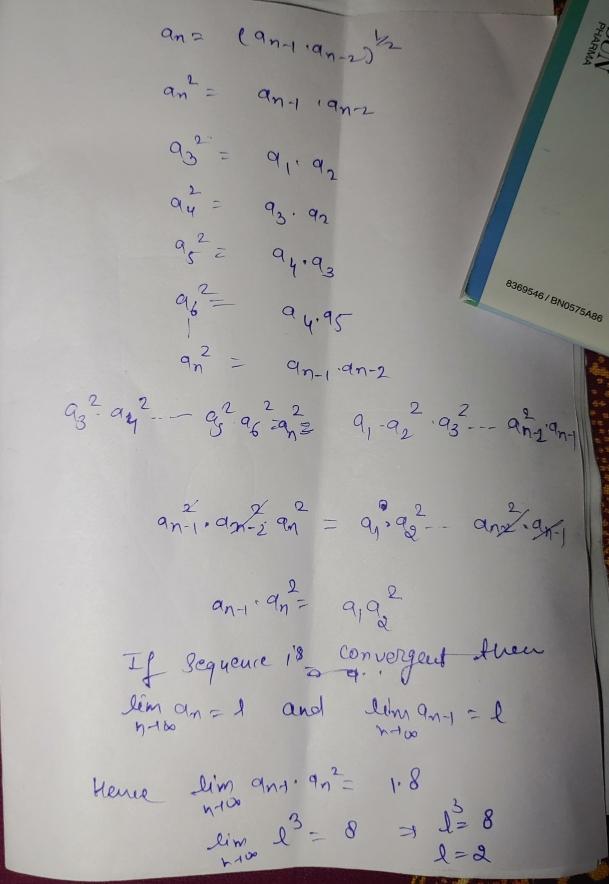 aₙ = (aₙ₋₁ · aₙ₋₂)^1/2
aₙ² = aₙ₋₁ · aₙ₋₂
a₃² = a₁ · a₂
a₄² = a₃ · a₂
a₅² = a₄ · a₃
a₆² = a₄ · a₅
|
aₙ² = aₙ₋₁ · aₙ₋₂
a₃² · a₄² ---- a₅² a₆² = aₙ² = a₁ · a₂² · a₃² --- aₙ₋₂² · aₙ₋₁
aₙ₋₁² · aₙ₋₂² · aₙ² = a₁ · a₂² --- aₙ₋₂² · aₙ₋₁
aₙ₋₁ · aₙ² = a₁ a₂²
If sequence is convergent then
lim n→∞ aₙ = l and lim n→∞ aₙ₋₁ = l
Hence lim n→∞ aₙ₋₁ · aₙ² = 1.8
lim n→∞ l³ = 8 ⇒ l³ = 8
l = 2
PHARMA
8369546 / BN0575A86